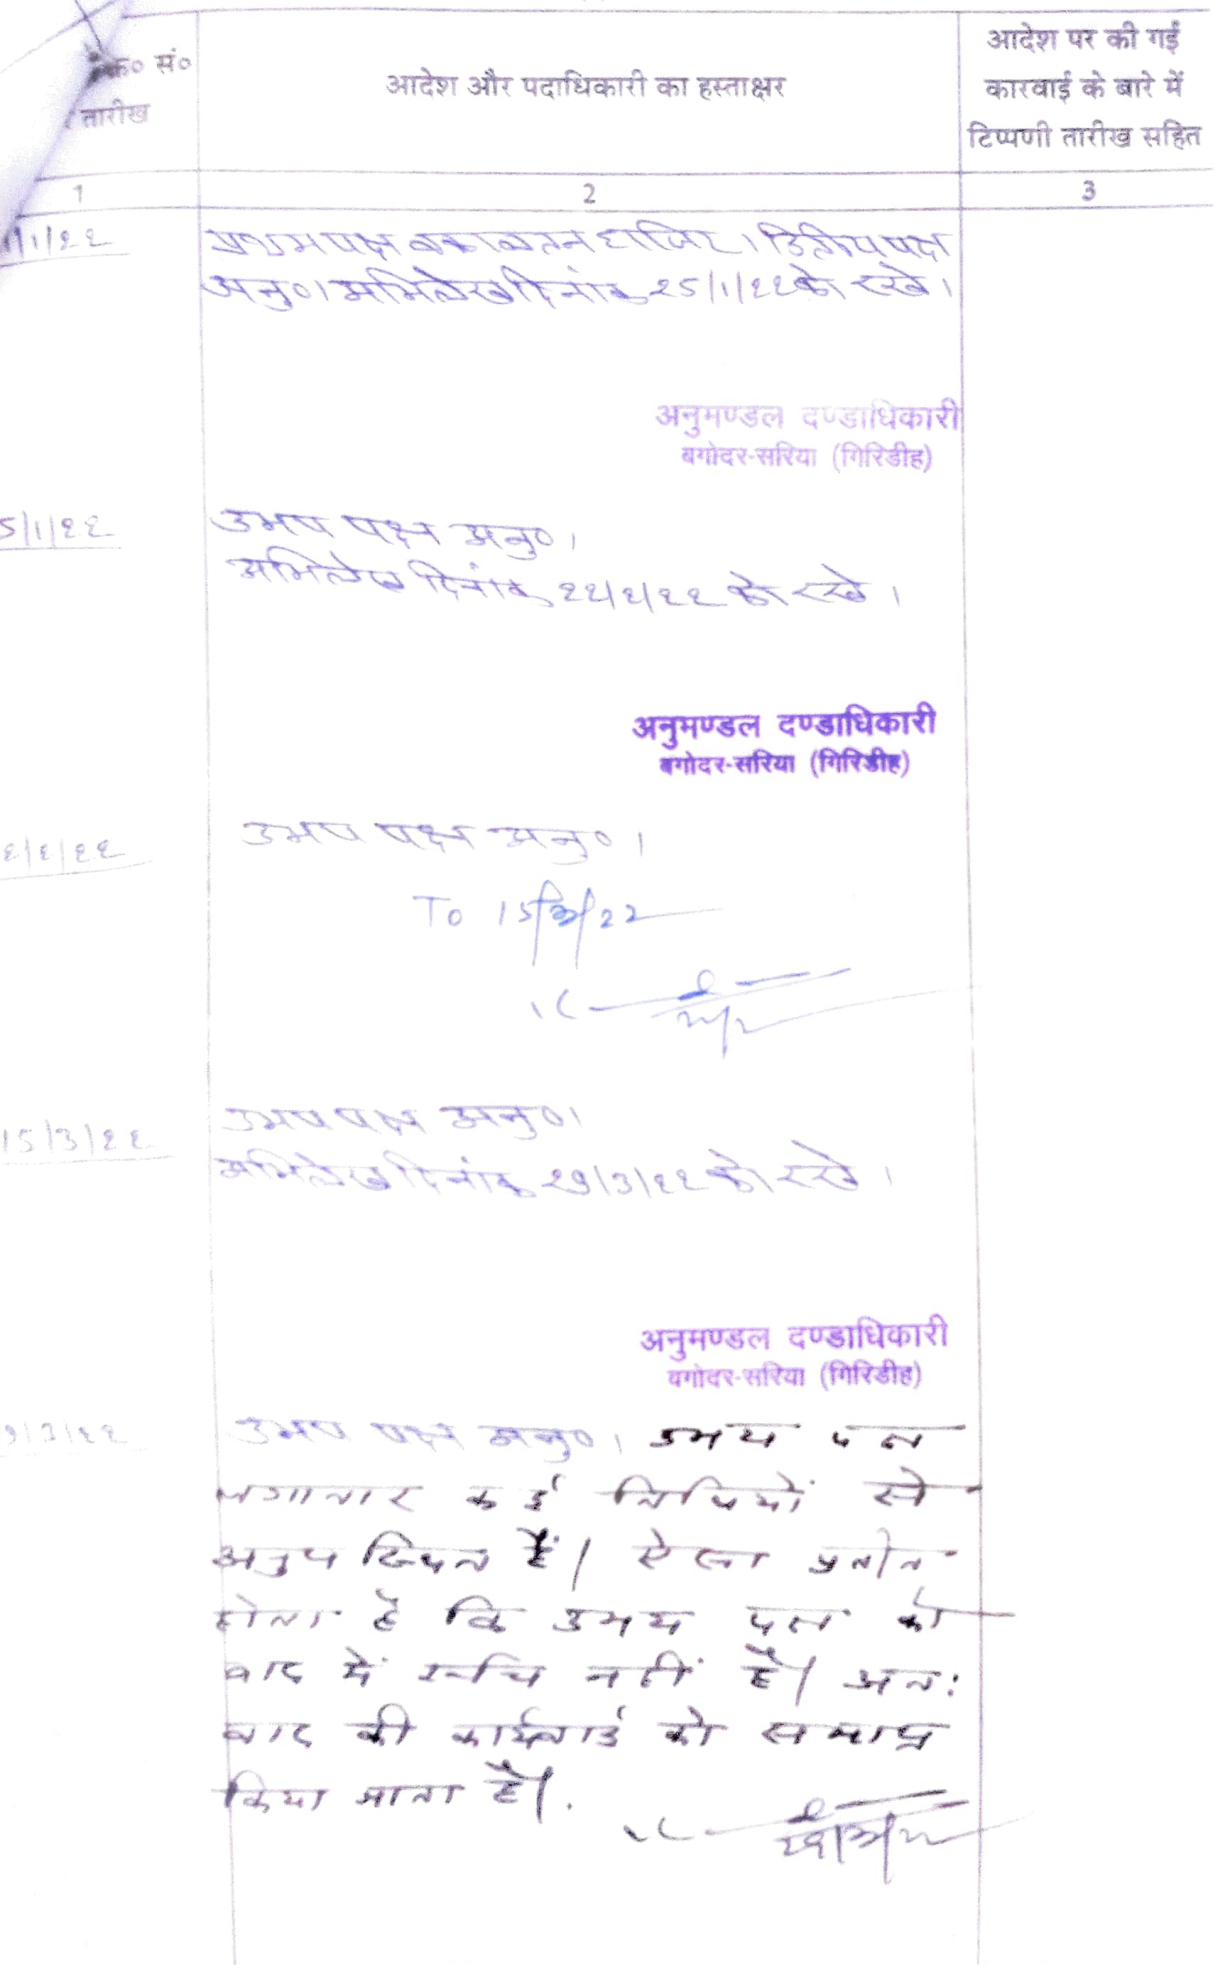 क्र० सं०
तारीख
आदेश और पदाधिकारी का हस्ताक्षर
आदेश पर की गई
कारवाई के बारे में
टिप्पणी तारीख सहित
1
2
3
/1/22
प्रथम पक्ष वकालतन हाजिर। द्वितीय पक्ष
अनु०। अभिलेख दिनांक 25/1/22 को रखे।
अनुमण्डल दण्डाधिकारी
बगोदर-सरिया (गिरिडीह)
5/1/22
उभय पक्ष अनु०।
अभिलेख दिनांक 22/2/22 को रखे।
अनुमण्डल दण्डाधिकारी
बगोदर-सरिया (गिरिडीह)
2/2/22
उभय पक्ष अनु०।
To 15/3/22
15/3/22
उभय पक्ष अनु०।
अभिलेख दिनांक 29/3/22 को रखे।
अनुमण्डल दण्डाधिकारी
बगोदर-सरिया (गिरिडीह)
9/3/22
उभय पक्ष अनु०। उभय पक्ष
लगातार कई तिथियों से
अनुपस्थित हैं। ऐसा प्रतीत
होता है कि उभय पक्ष को
वाद में रूचि नहीं है। अतः
वाद की कार्यवाई को समाप्त
किया जाता है।